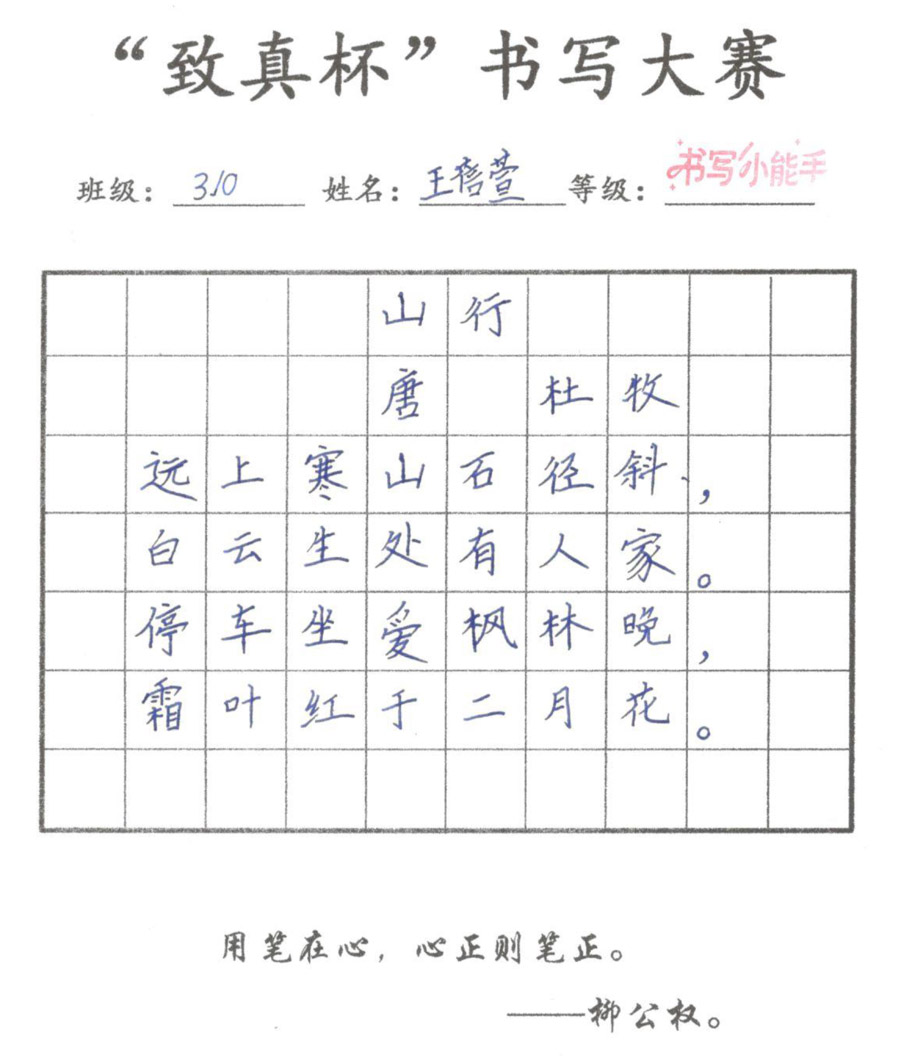 “致真杯”书写大赛
班级：310 姓名：王萱 等级：书写小能手
山行
唐 杜牧
远上寒山石径斜，
白云生处有人家。
停车坐爱枫林晚，
霜叶红于二月花。
用笔在心，心正则笔正。
——柳公权。